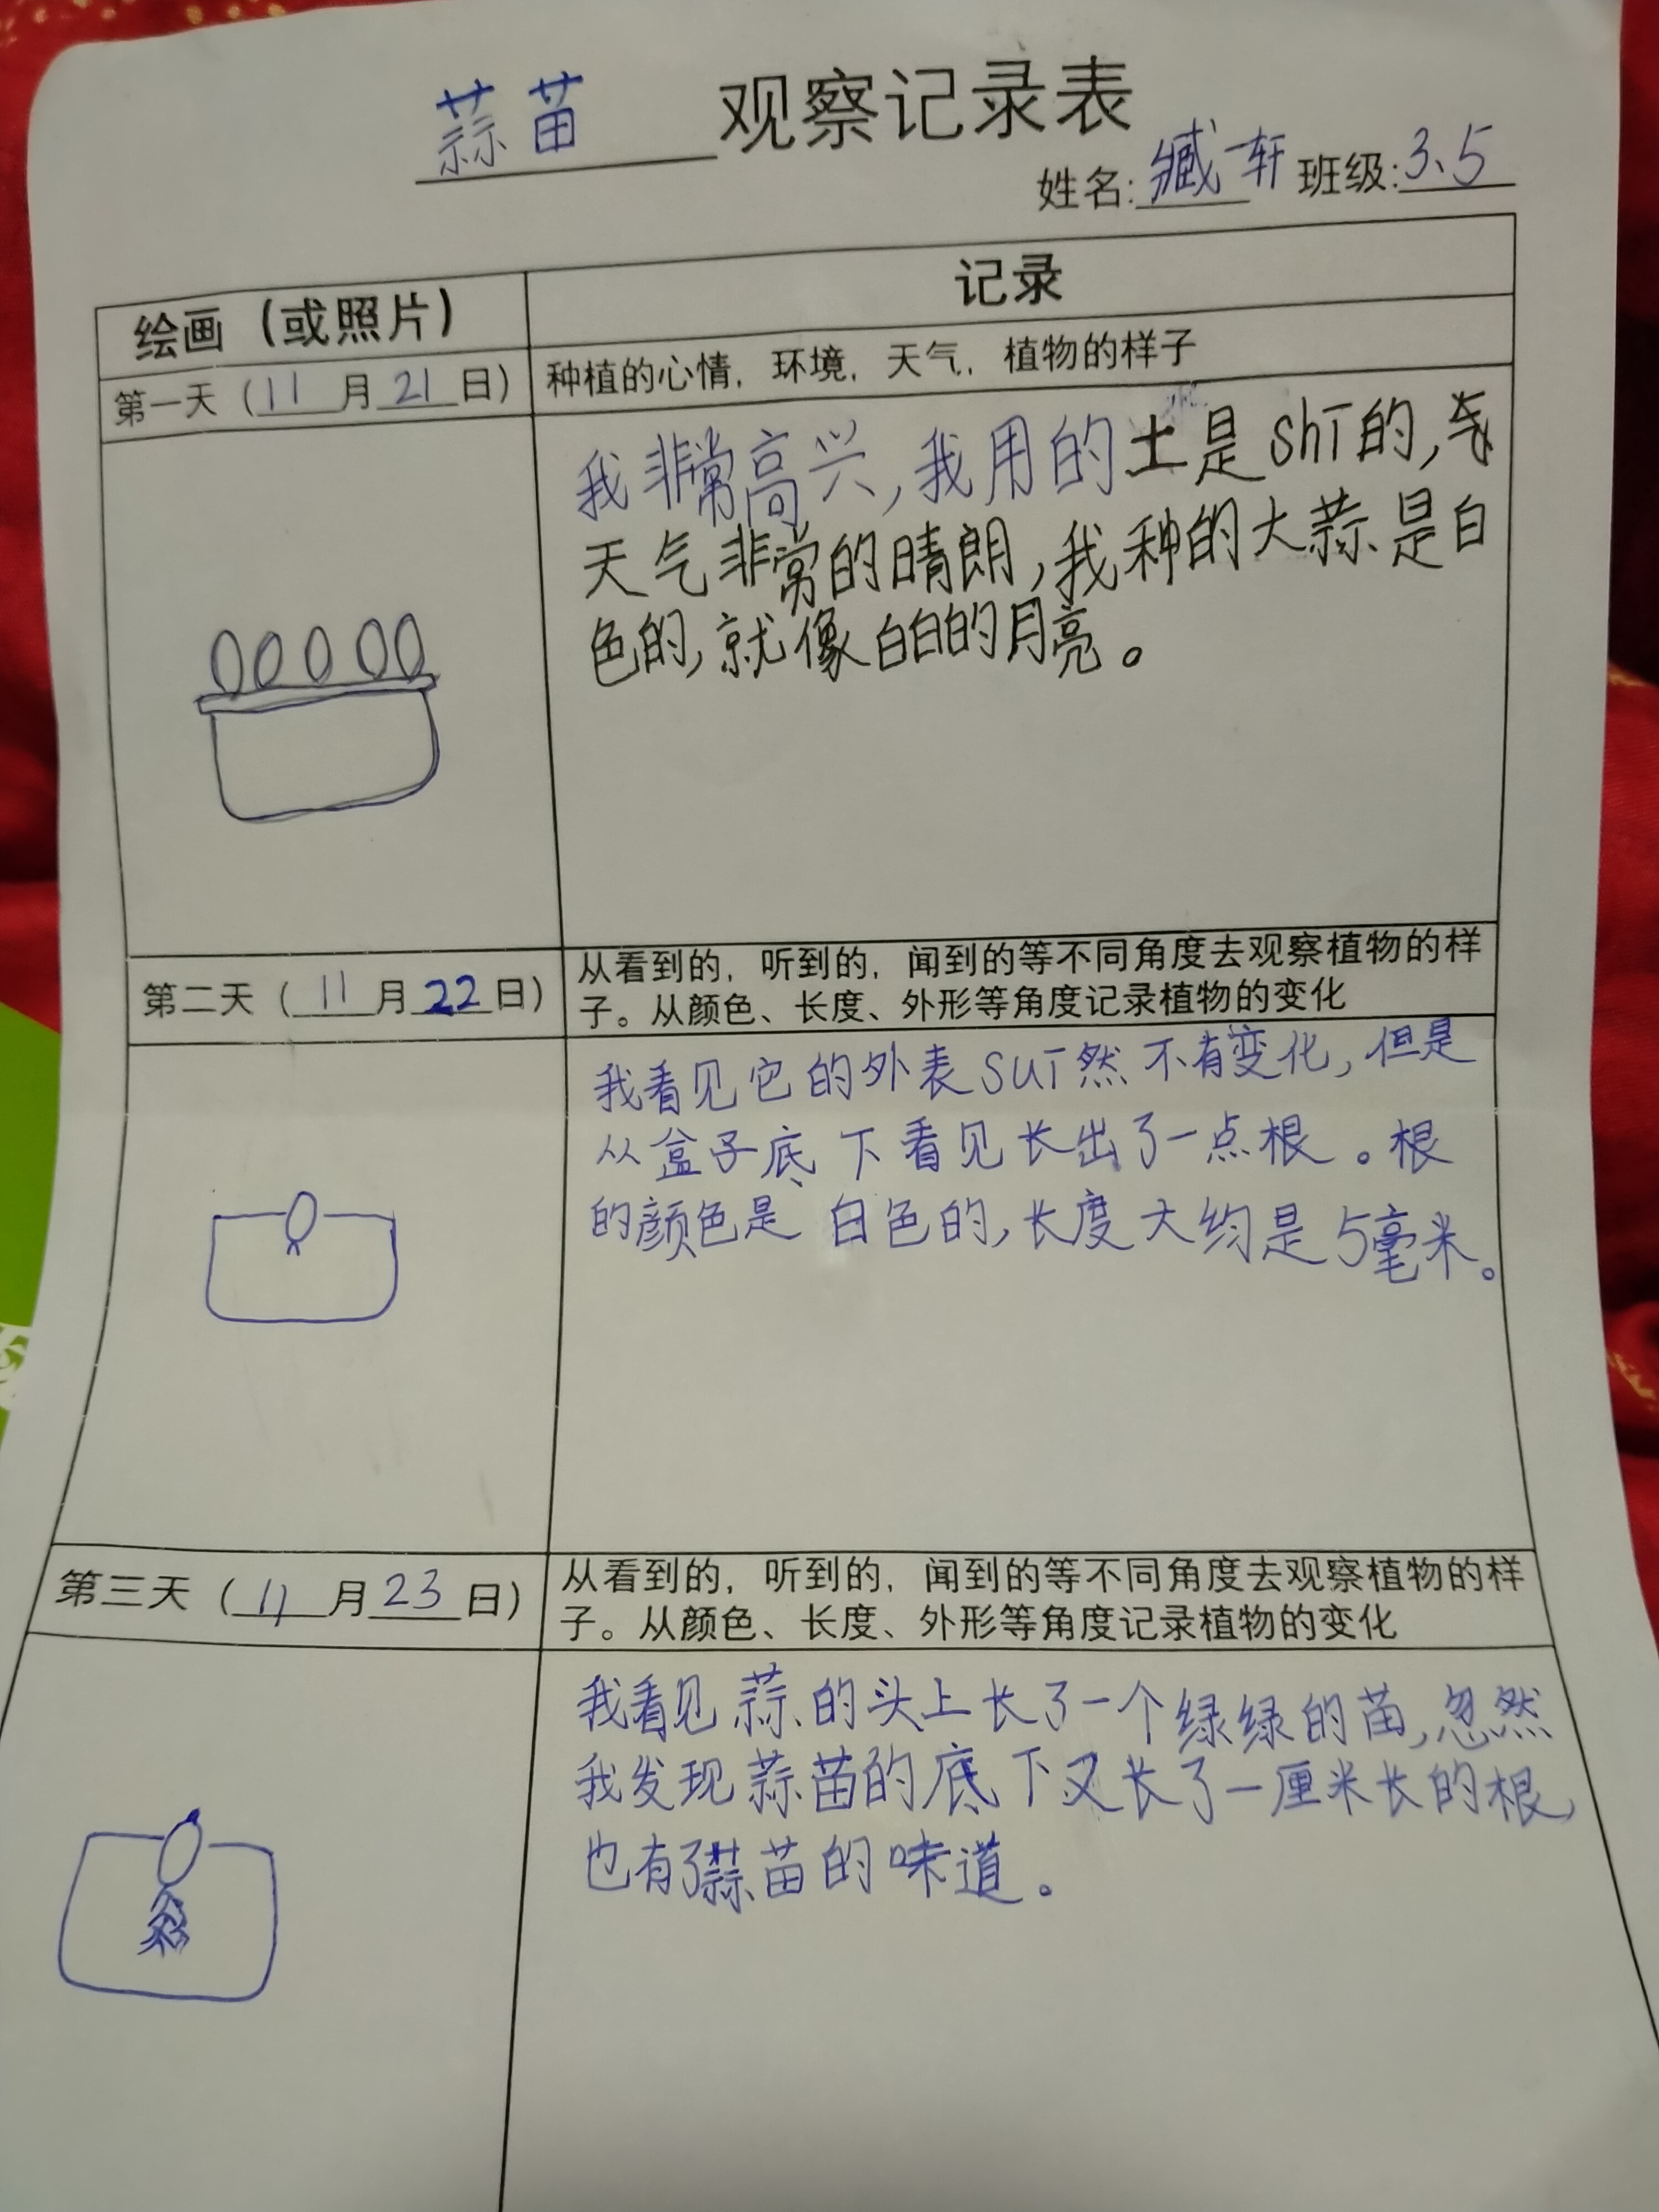 蒜苗 观察记录表
姓名: 臧一轩 班级: 3、5
绘画（或照片）
记录
第一天（11月21日）
种植的心情，环境，天气，植物的样子
我非常高兴,我用的土是shī的,
天气非常的晴朗,我种的大蒜是白
色的,就像白白的月亮。
第二天（11月22日）
从看到的，听到的，闻到的等不同角度去观察植物的样
子。从颜色、长度、外形等角度记录植物的变化
我看见它的外表suī然不有变化,但是
从盒子底下看见长出了一点根。根
的颜色是白色的,长度大约是5毫米。
第三天（11月23日）
从看到的，听到的，闻到的等不同角度去观察植物的样
子。从颜色、长度、外形等角度记录植物的变化
我看见蒜的头上长了一个绿绿的苗,忽然
我发现蒜苗的底下又长了一厘米长的根,
也有了蒜苗的味道。